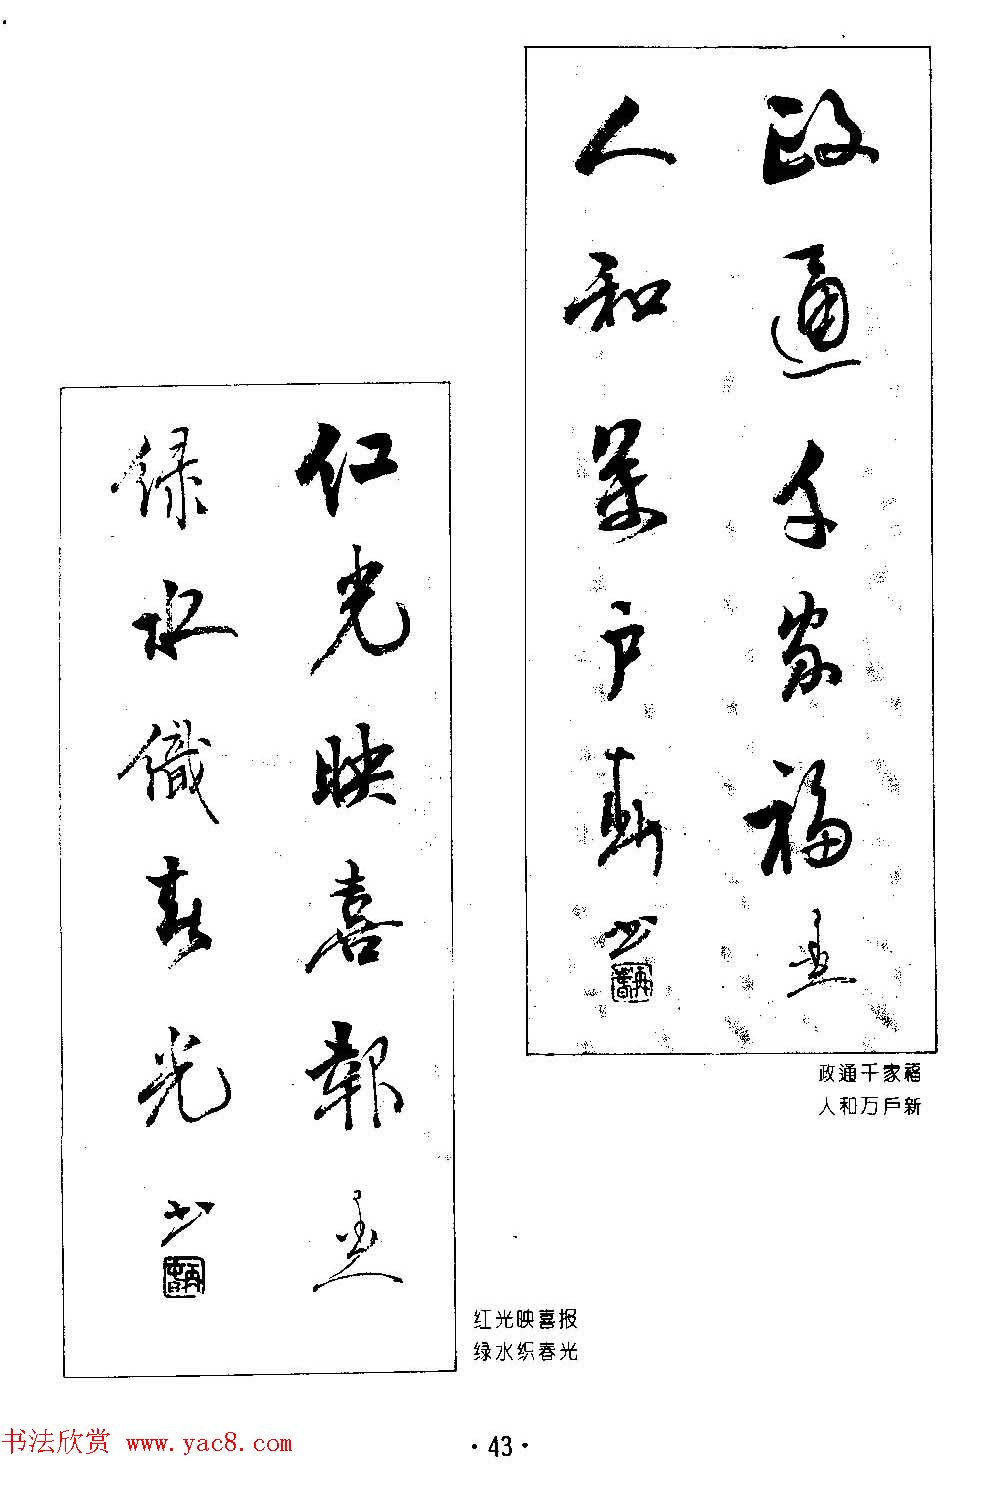 政通千家福
人和萬户新
政通千家福
人和万户新
红光映喜报
绿水织春光
红光映喜報
绿水織春光
书法欣赏 www.yac8.com
·43·